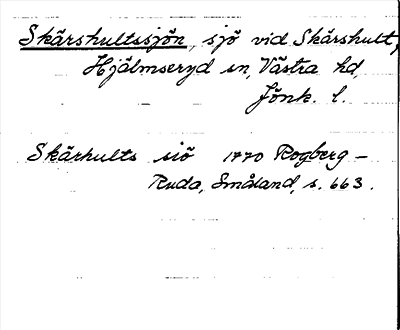 Skärshultssjön, sjö vid Skärshult,
Hjälmseryd sn, Västra hd,
Jönk. l.
Skärhults siö 1770 Rogberg –
Ruda, Småland, s. 663.